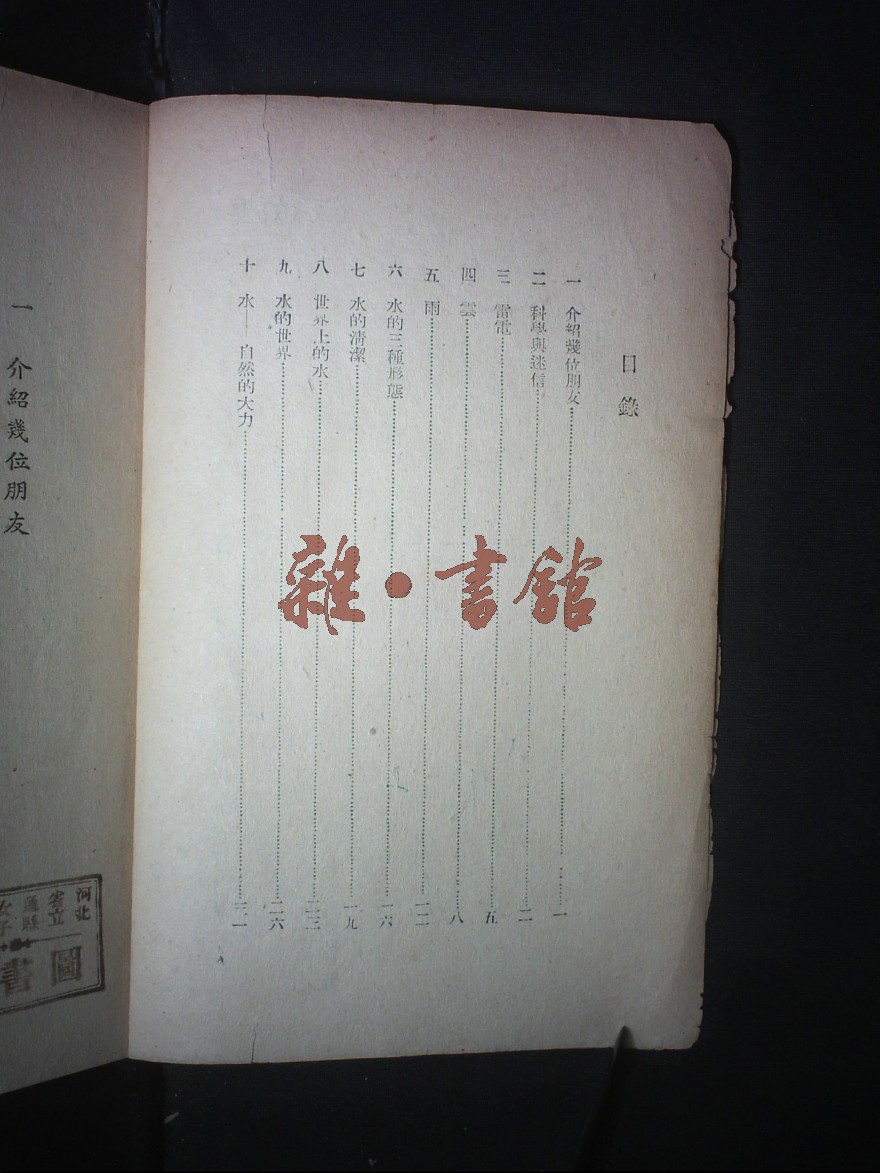 目錄
一 介紹幾位朋友 一
二 科學與迷信 二
三 雷電 五
四 雲 八
五 雨 一二
六 水的三種形態 一六
七 水的清潔 一九
八 世界上的水 二三
九 水的世界 二六
十 水——自然的大力 三一
雜·書館
一 介紹幾位朋友
河北
省立
通縣
女子
圖書